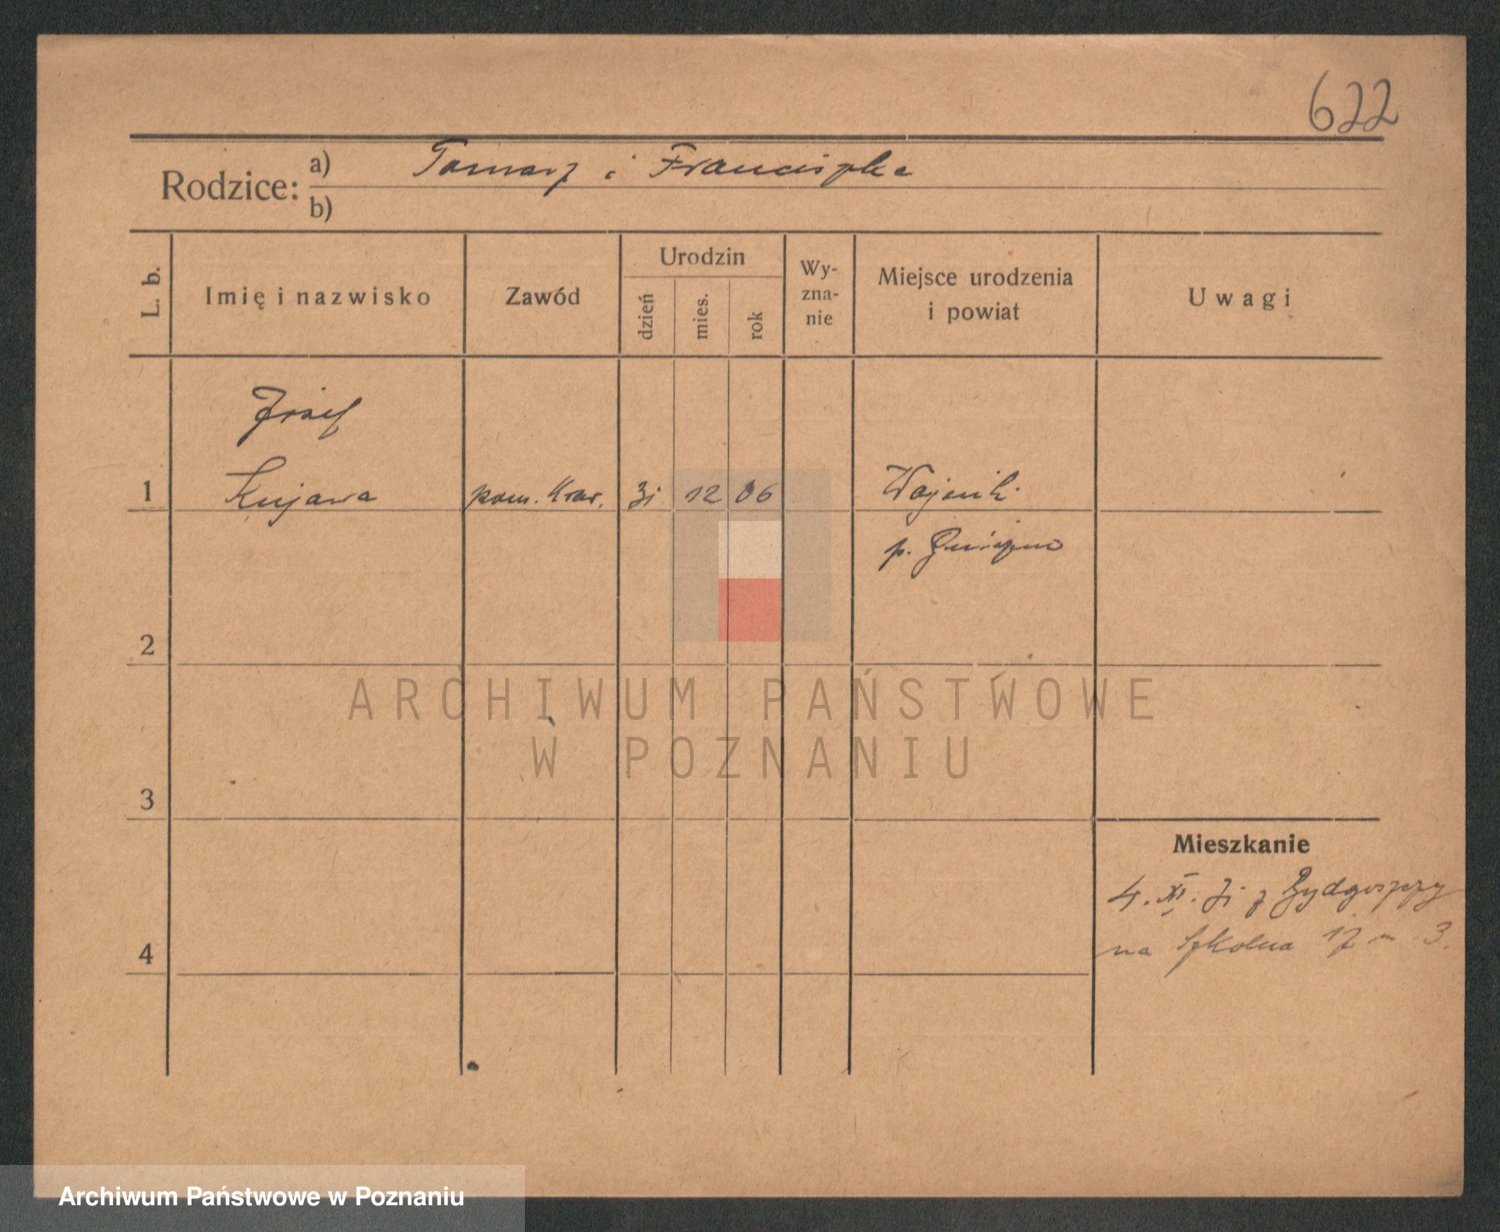 622
Rodzice: a) Tomasz i Franciszka
b)
L. b.
Imię i nazwisko
Zawód
Urodzin
dzień
mies.
rok
Wy-
zna-
nie
Miejsce urodzenia
i powiat
Uwagi
Józef
1 Kujawa pom. kraw. 31 12 06
p. Gniezno
2
ARCHIWUM PAŃSTWOWE
W POZNANIU
3
Mieszkanie
4. XI. 31 z Bydgoszczy
4
na Szkolna 17 m 3.
Archiwum Państwowe w Poznaniu